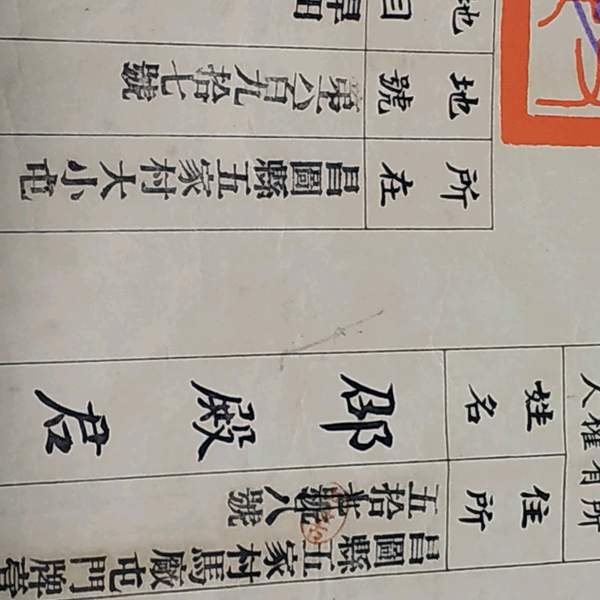 所有權人
住所
昌圖縣五家村馬廠屯門牌壹
五拾 號八號
姓名
邵殿君
所在
昌圖縣五家村大小屯
地號
第 八百九拾七號
地目
旱田